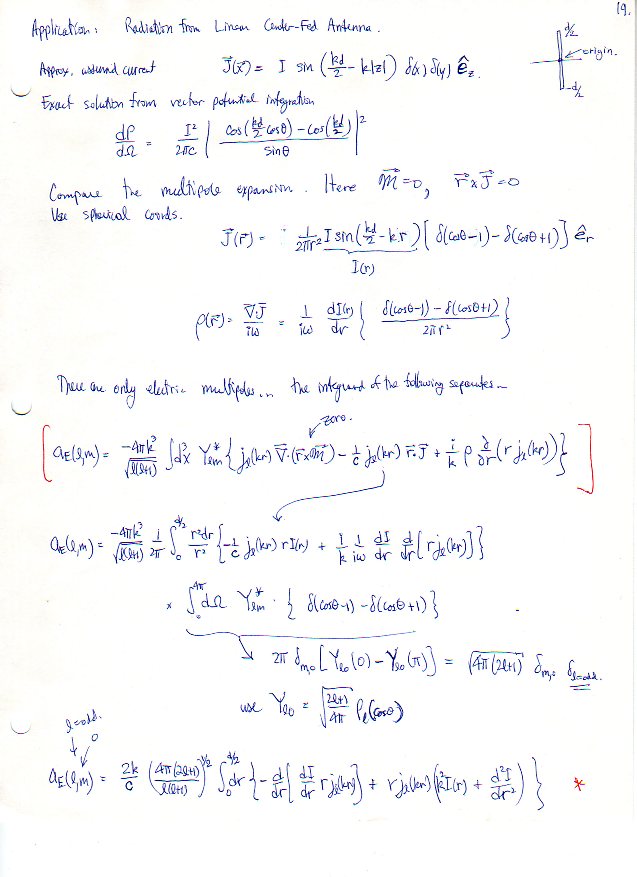 19.
Application: Radiation from Linear Center-Fed Antenna.
d/2
origin.
-d/2
Approx, assumed current J⃗(x⃗) = I sin(kd/2 - k|z|) δ(x) δ(y) ê_z.
Exact solution from vector potential integration
dP/dΩ = I²/2πc |(cos(kd/2 cosθ) - cos(kd/2))/sinθ|²
Compare the multipole expansion. Here M⃗=0, r⃗×J⃗=0
Use spherical coords.
J⃗(r⃗) = 1/2πr² I sin(kd/2 - kr) [δ(cosθ-1) - δ(cosθ+1)] ê_r
I(r)
ρ(r⃗) = ∇⃗·J⃗/iω = 1/iω dI(r)/dr { (δ(cosθ-1) - δ(cosθ+1))/2πr² }
There are only electric multipoles... the integrand of the following separates...
zero.
[ a_E(l,m) = -4πk³/√(l(l+1)) ∫d³x Y*_lm { j_l(kr) ∇⃗·(r⃗×M⃗) - 1/c j_l(kr) r⃗·J⃗ + i/k ρ ∂/∂r (r j_l(kr)) } ]
a_E(l,m) = -4πk³/√(l(l+1)) 1/2π ∫₀^{d/2} r²dr/r² { -1/c j_l(kr) r I(r) + i/k 1/iω dI/dr d/dr [r j_l(kr)] }
× ∫₀^{4π} dΩ Y*_lm · { δ(cosθ-1) - δ(cosθ+1) }
2π δ_m,0 [Y_l0(0) - Y_l0(π)] = √(4π(2l+1)) δ_m,0 δ_l=odd.
use Y_l0 = √((2l+1)/4π) P_l(cosθ)
l=odd.
0
a_E(l,m) = 2k/c (4π(2l+1)/l(l+1))^{1/2} ∫₀^{d/2} dr { -d/dr [dI/dr r j_l(kr)] + r j_l(kr) (k²I(r) + d²I/dr²) } *